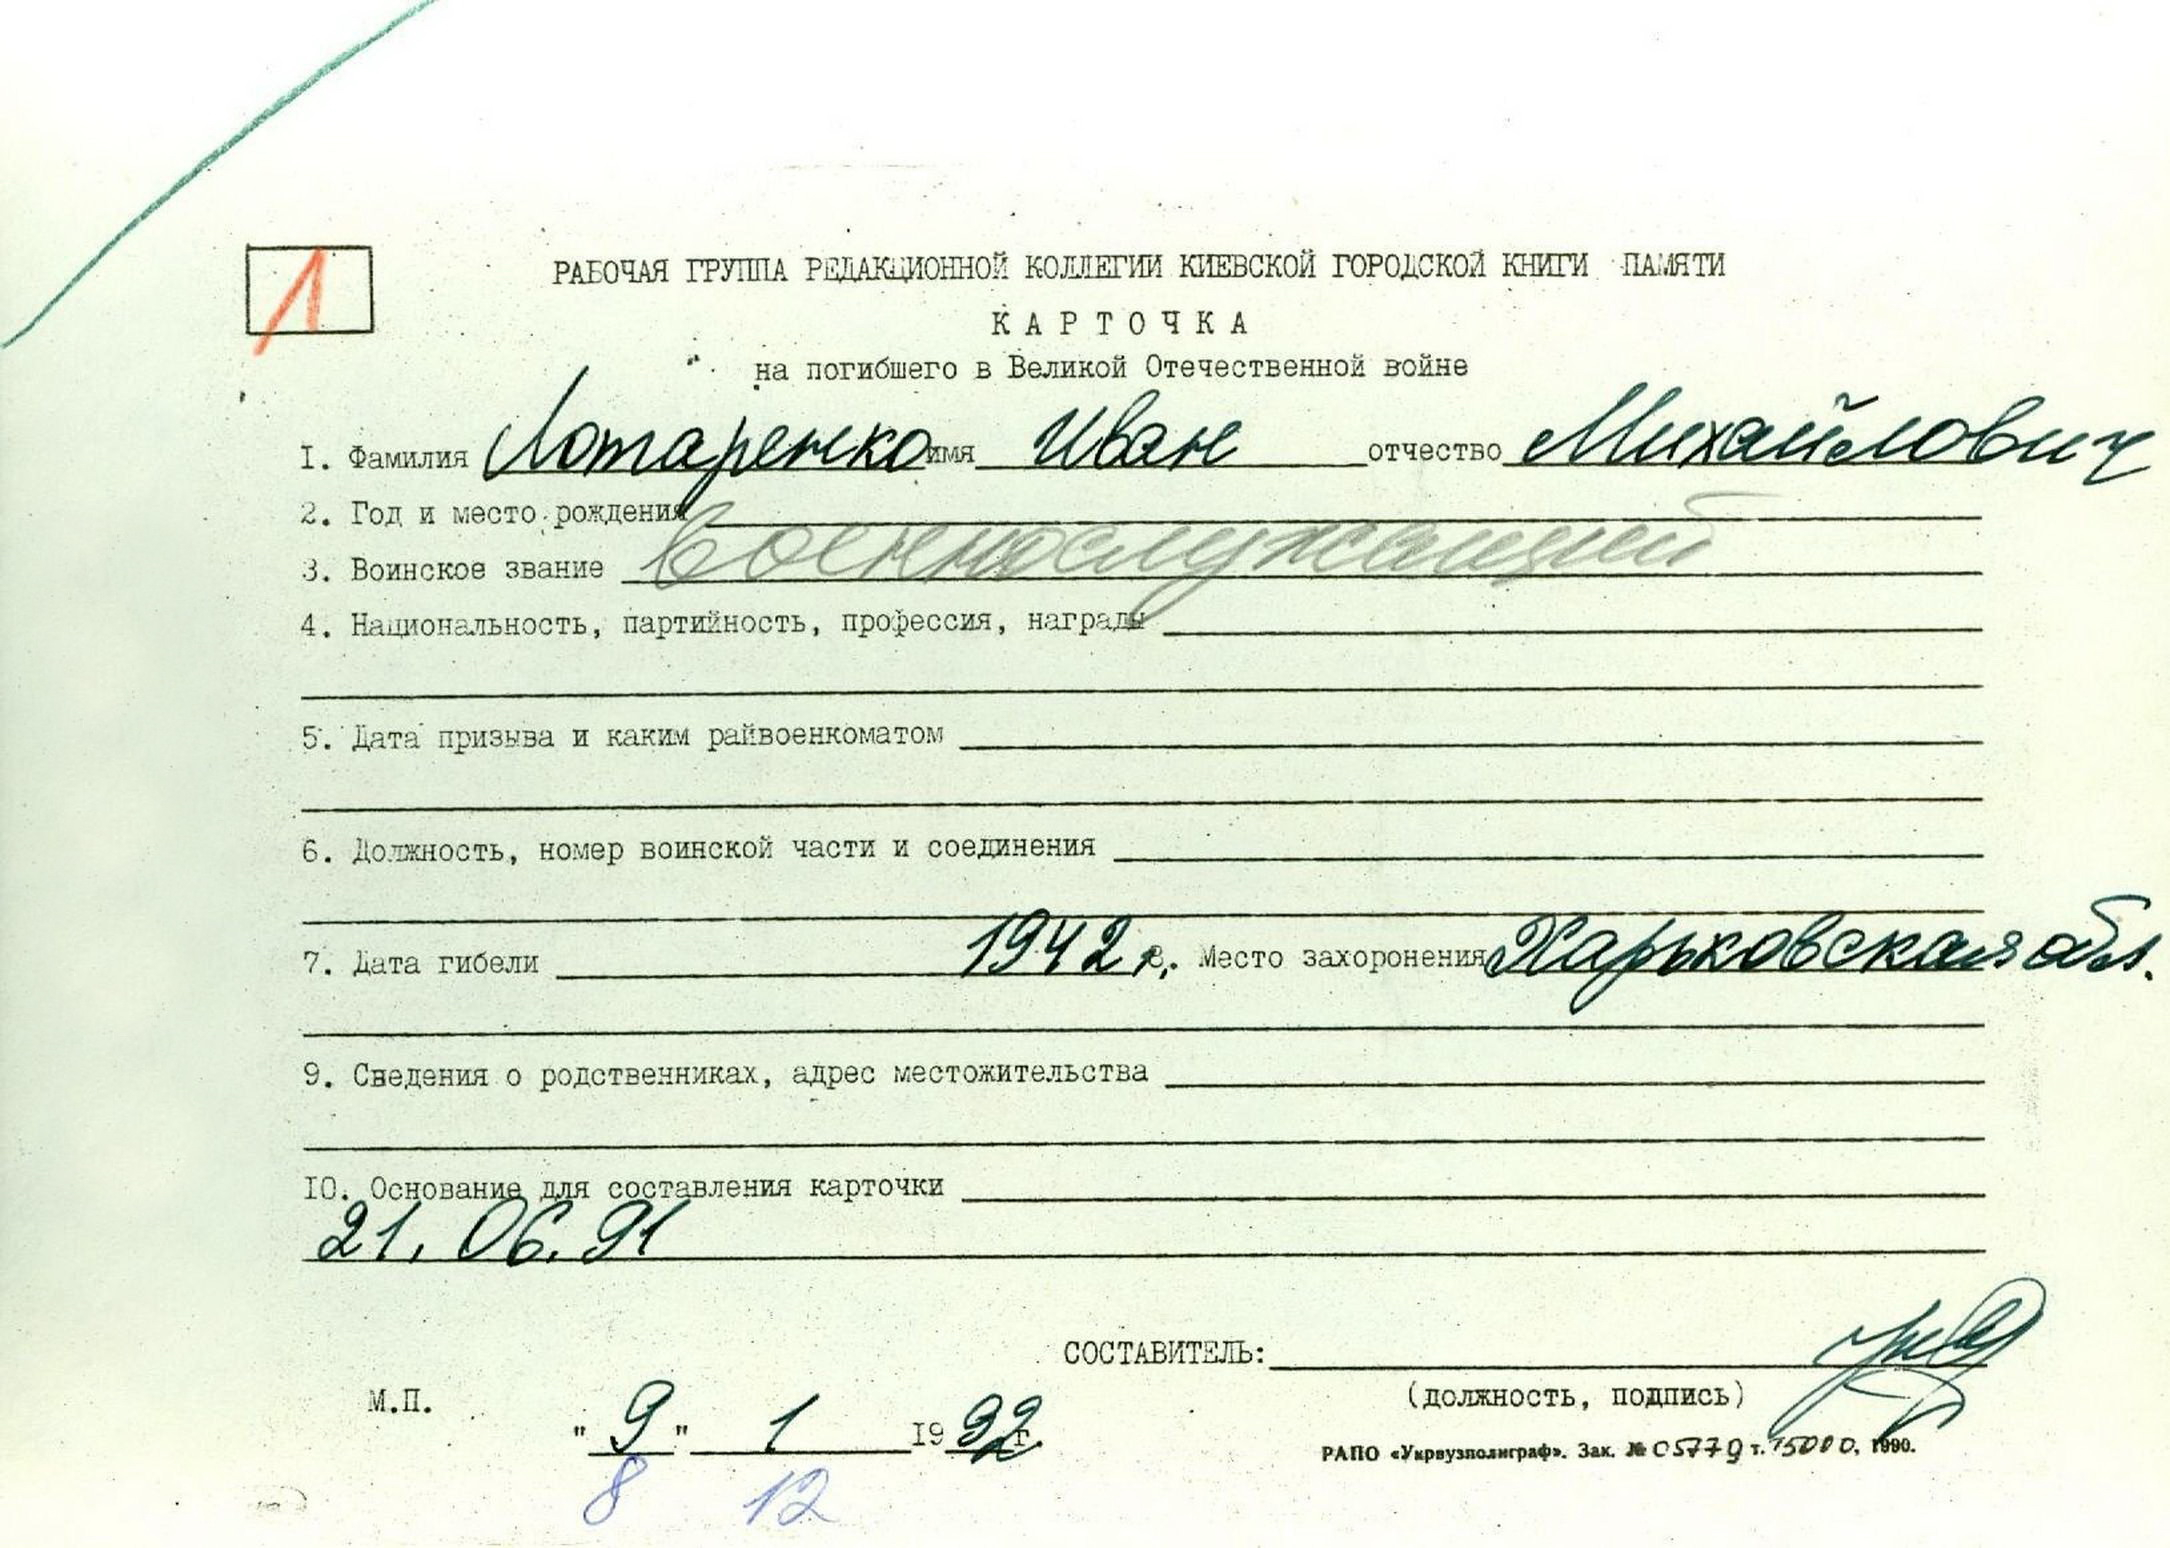 1
РАБОЧАЯ ГРУППА РЕДАКЦИОННОЙ КОЛЛЕГИИ КИЕВСКОЙ ГОРОДСКОЙ КНИГИ ПАМЯТИ
КАРТОЧКА
на погибшего в Великой Отечественной войне
I. Фамилия Лотаренко имя Иван отчество Михайлович
2. Год и место рождения
3. Воинское звание военнослужащий
4. Национальность, партийность, профессия, награды
5. Дата призыва и каким райвоенкоматом
6. Должность, номер воинской части и соединения
7. Дата гибели 1942 г. 8. Место захоронения Харьковская обл.
9. Сведения о родственниках, адрес местожительства
I0. Основание для составления карточки
21.06.91
СОСТАВИТЕЛЬ:
(должность, подпись)
М.П.
"9" 1 1992 г.
РАПО «Укрвузполиграф». Зак. № 05779 т. 15000, 1990.
8 12